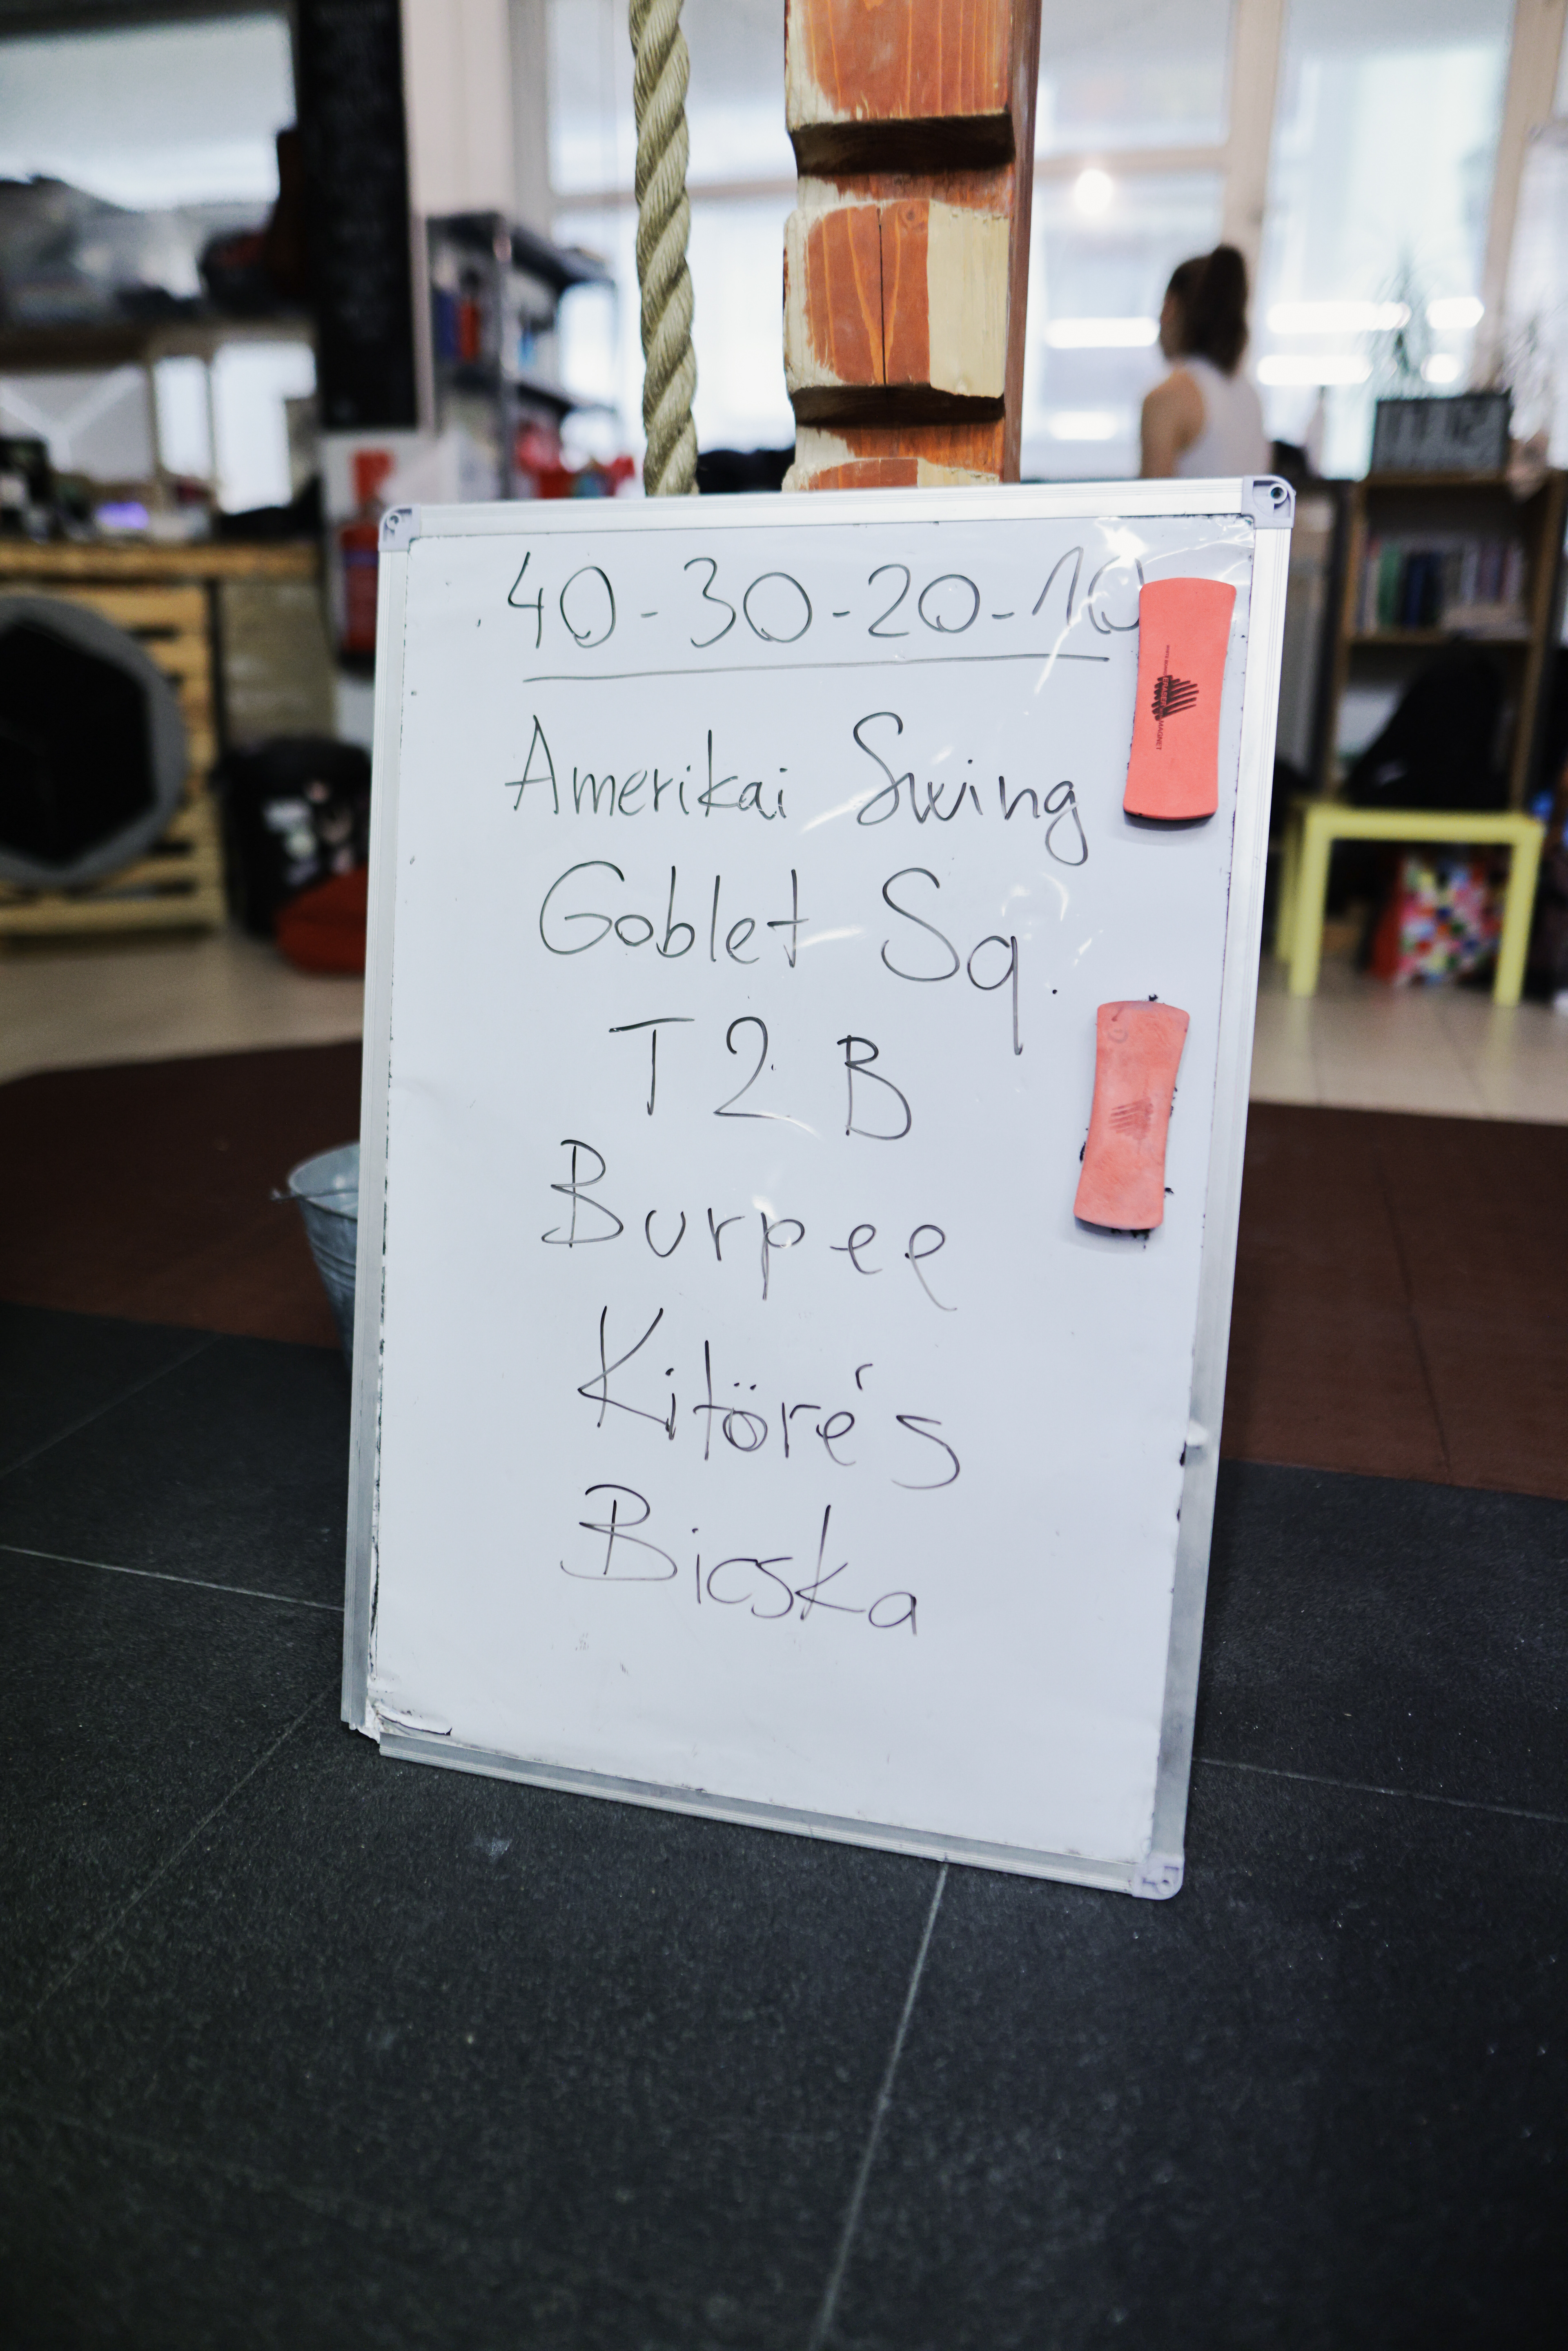 40-30-20-10
Amerikai Swing
Goblet Sq.
T2B
Burpee
Kitörés
Bicska
MAGNET